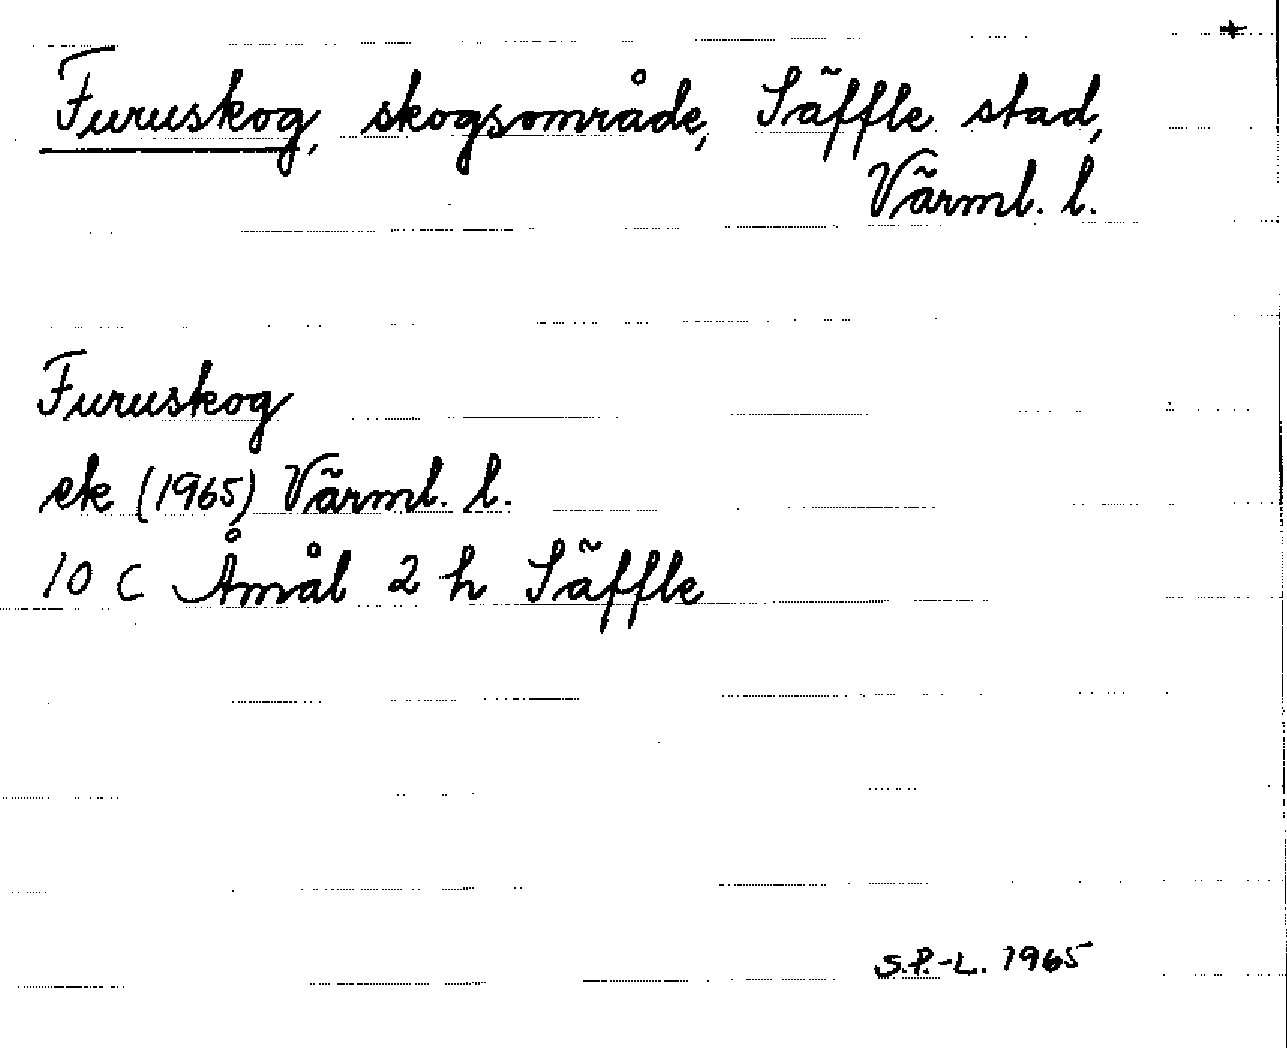 +
Furuskog, skogsområde, Säffle stad,
Värml. l.
Furuskog
ek (1965) Värml. l.
10 C Åmål 2 h Säffle
S.P.-L. 1965